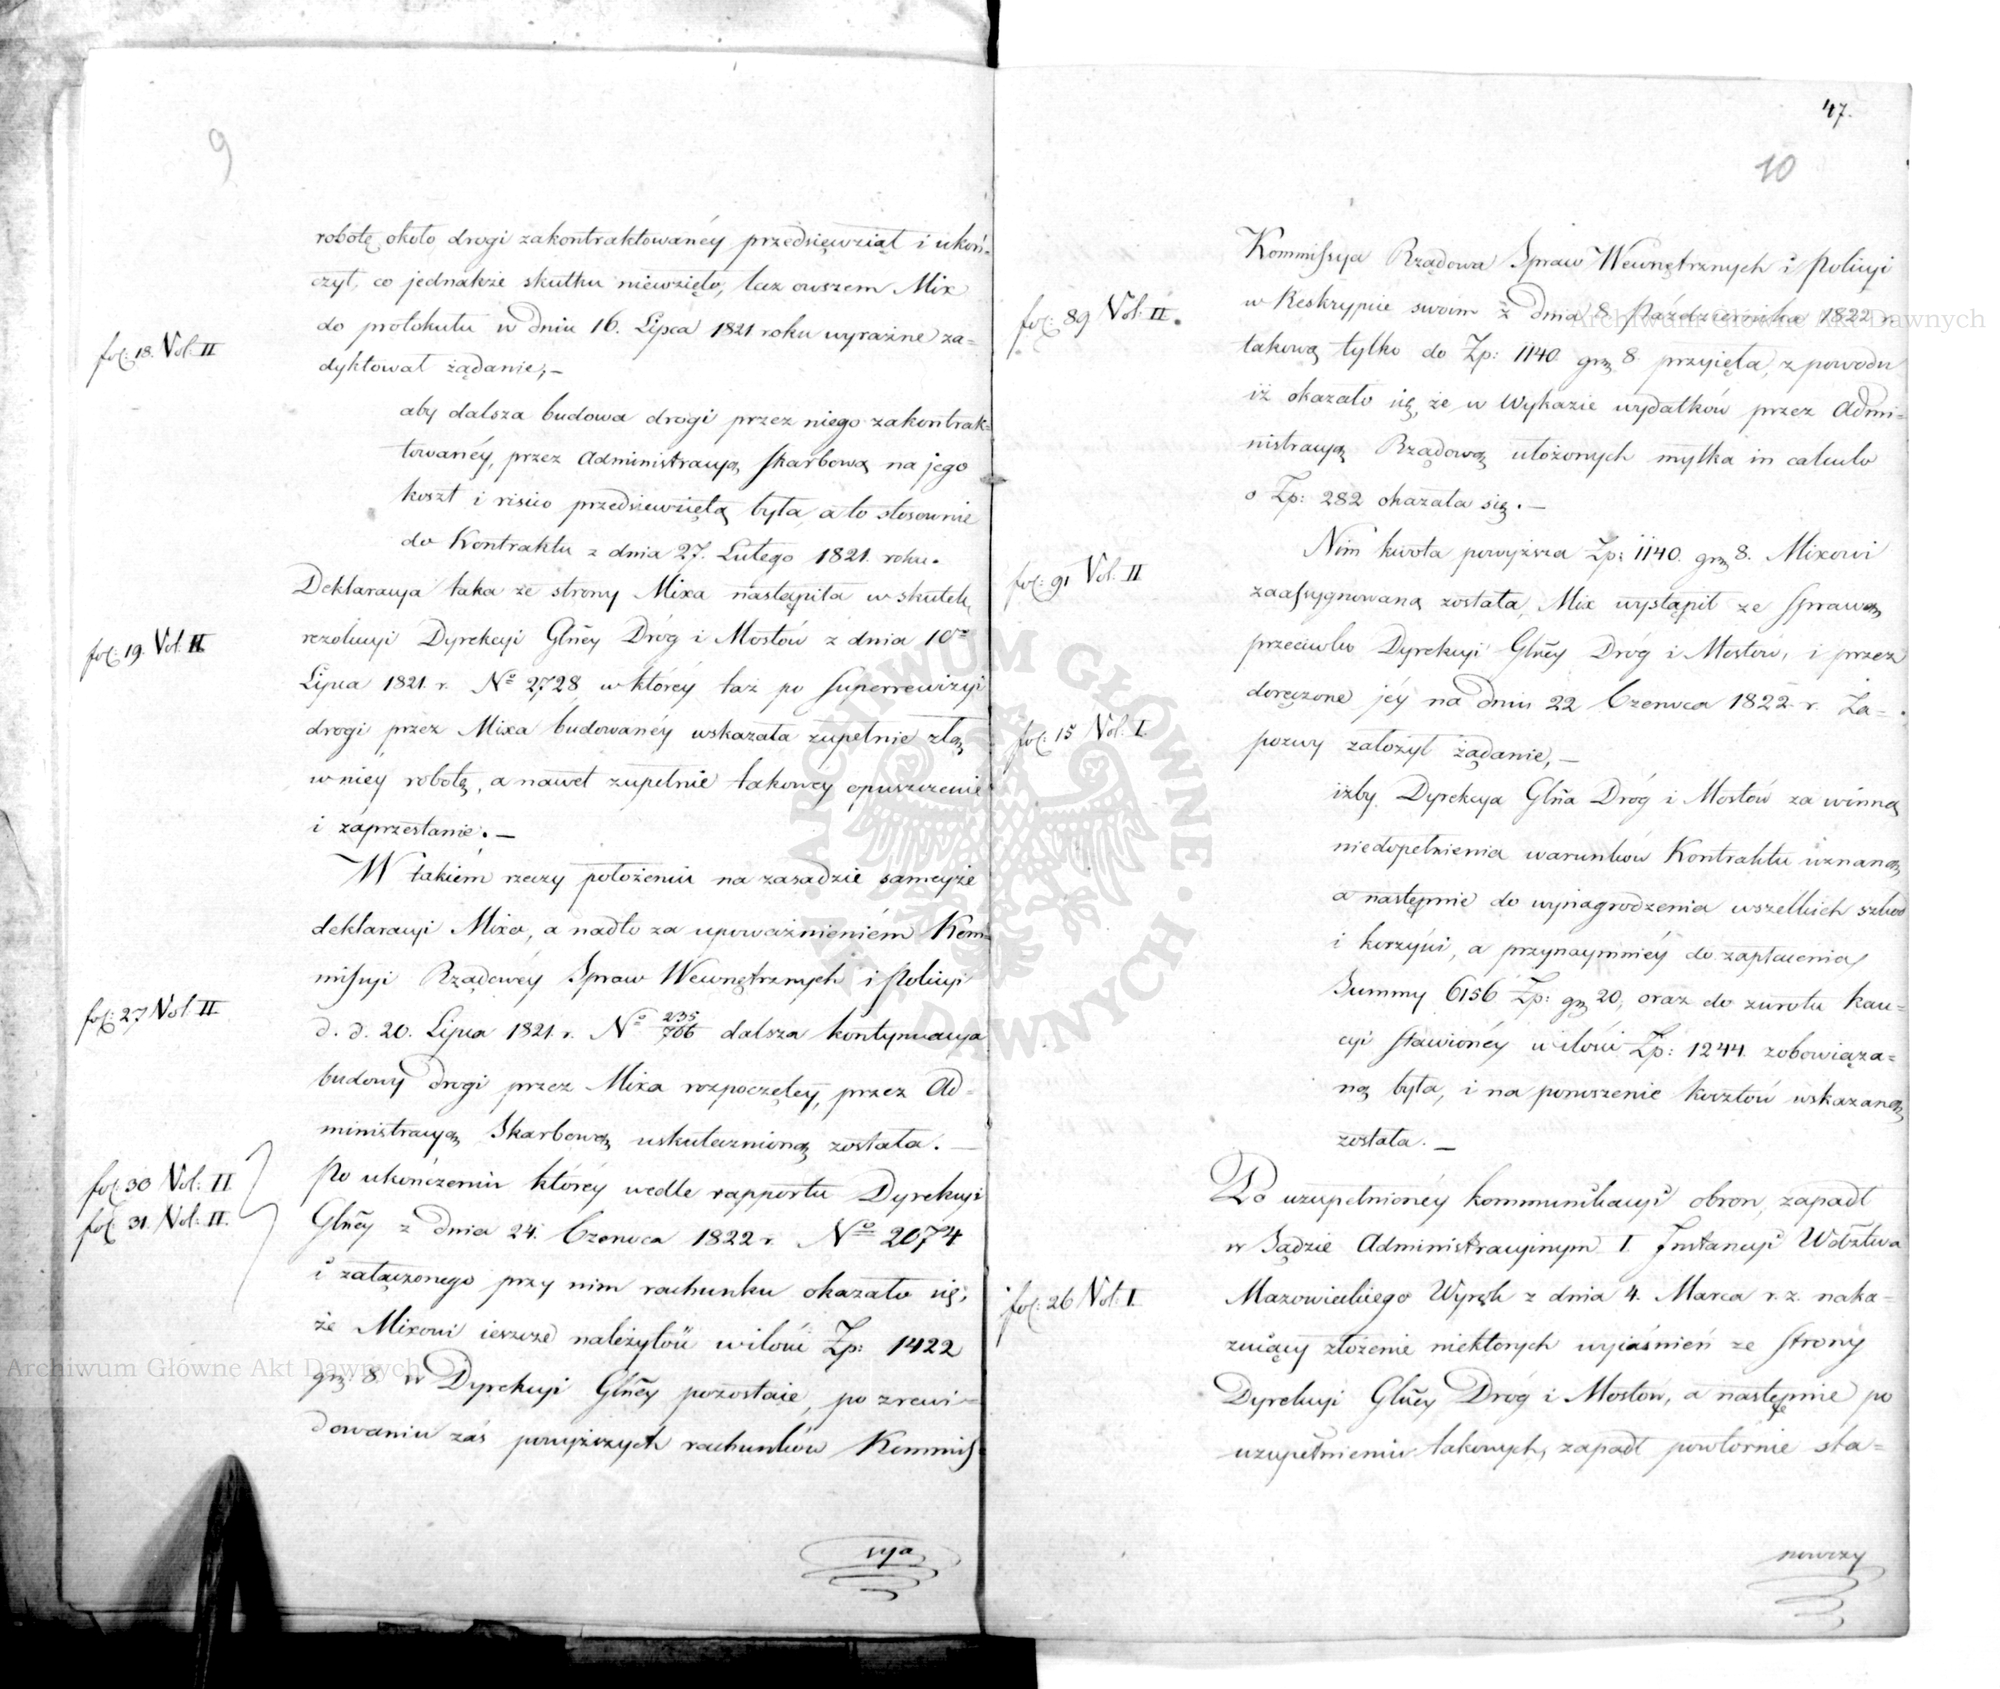 9
robotę około drogi zakontraktowanéy przedsięwziął i ukoń-
czył, co jednakże skutku niewzięło, lecz owszem Mix
do protokułu w dniu 16. Lipca 1821 roku wyraźne za-
fol: 18. Vol: II
dyktował żądanie, —
aby dalsza budowa drogi przez niego zakontrak-
towanéy, przez Administracyą Skarbową na jego
koszt i risico przedsiewziętą była, a to stosownie
do Kontraktu z dnia 27. Lutego 1821. roku.
Deklaracya taka ze strony Mixa nastąpiła w skutek
fol: 19. Vol: II
rezolucyi Dyrekcyi Głñey Dróg i Mostów z dnia 10º
Lipca 1821. r. Nº 2728 w któréy taż po Superrewizyi
drogi przez Mixa budowanéy wskazała zupełnie złą
w niéy robotę, a nawet zupełnie takowey opuszczenie
i zaprzestanie. —
W takiém rzeczy położeniu na zasadzie sameyże
deklaracyi Mixa, a nadto za upoważnieniém Kom-
missyi Rządowéy Spraw Wewnętrznych i Policyi
fol: 27 Vol II
d. d. 20. Lipca 1821. r. Nº 235/706 dalsza kontynuacya
budowy drogi przez Mixa rozpoczętey, przez Ad-
ministracyą Skarbową uskutecznioną została. —
fol: 30 Vol: II
Po ukończeniu któréy wedle rapportu Dyrekcyi
fol: 31. Vol: II.
Głñey z dnia 24. Czerwca 1822 r. Nº 2074
i załączonego przy nim rachunku okazało się,
że Mixowi ieszcze należytość w ilości Zp: 1422
gr. 8. w Dyrekcyi Głñey pozostaie, po zrewi-
dowaniu zaś powyższych rachunków Kommis-
sya
47.
10
Kommissya Rządowa Spraw Wewnętrznych i Policyi
fol: 89 Vol: II.
w Reskrypcie swoim z dnia 8. Października 1822 r.
takową tylko do Zp: 1140 gr. 8. przyięła, z powodu
iż okazało się, że w Wykazie wydatków przez Admi-
nistracyą Rządową ułożonych myłka in calculo
o Zp: 282 okazała się. —
Nim kwota powyższa Zp: 1140. gr. 8. Mixowi
fol: 91 Vol: II
zaassygnowaną została, Mix wystąpił ze Sprawą
przeciwko Dyrekcyi Głñey Dróg i Mostów, i przez
doręczone jéy na dniu 22 Czerwca 1822 r. Za-
fol: 15 Vol: I.
pozwy założył żądanie, —
iżby Dyrekcya Głña Dróg i Mostów za winną
niedopełnienia warunków Kontraktu uznaną,
a następnie do wynagrodzenia wszelkich szkod
i korzyści, a przynaymniéy do zapłacenia
Summy 6156 Zp: gr. 20, oraz do zwrotu kau-
cyi stawionéy w ilości Zp: 1244. zobowiąza-
ną była, i na poniszenie kosztów wskazaną
została. —
Po uzupełnionéy kommunikacyi obron, zapadł
w Sądzie Administracyinym I. Instancyi Wdztwa
fol: 26 Vol: I.
Mazowieckiego Wyrok z dnia 4. Marca r. z. naka-
zuiący złożenie niektorych wyiaśnień ze Strony
Dyrekcyi Głñey Dróg i Mostów, a następnie po
uzupełnieniu takowych, zapadł powtórnie sta-
nowczy
Archiwum Główne Akt Dawnych
Archiwum Główne Akt Dawnych
· ARCHIWUM GŁÓWNE · AKT DAWNYCH